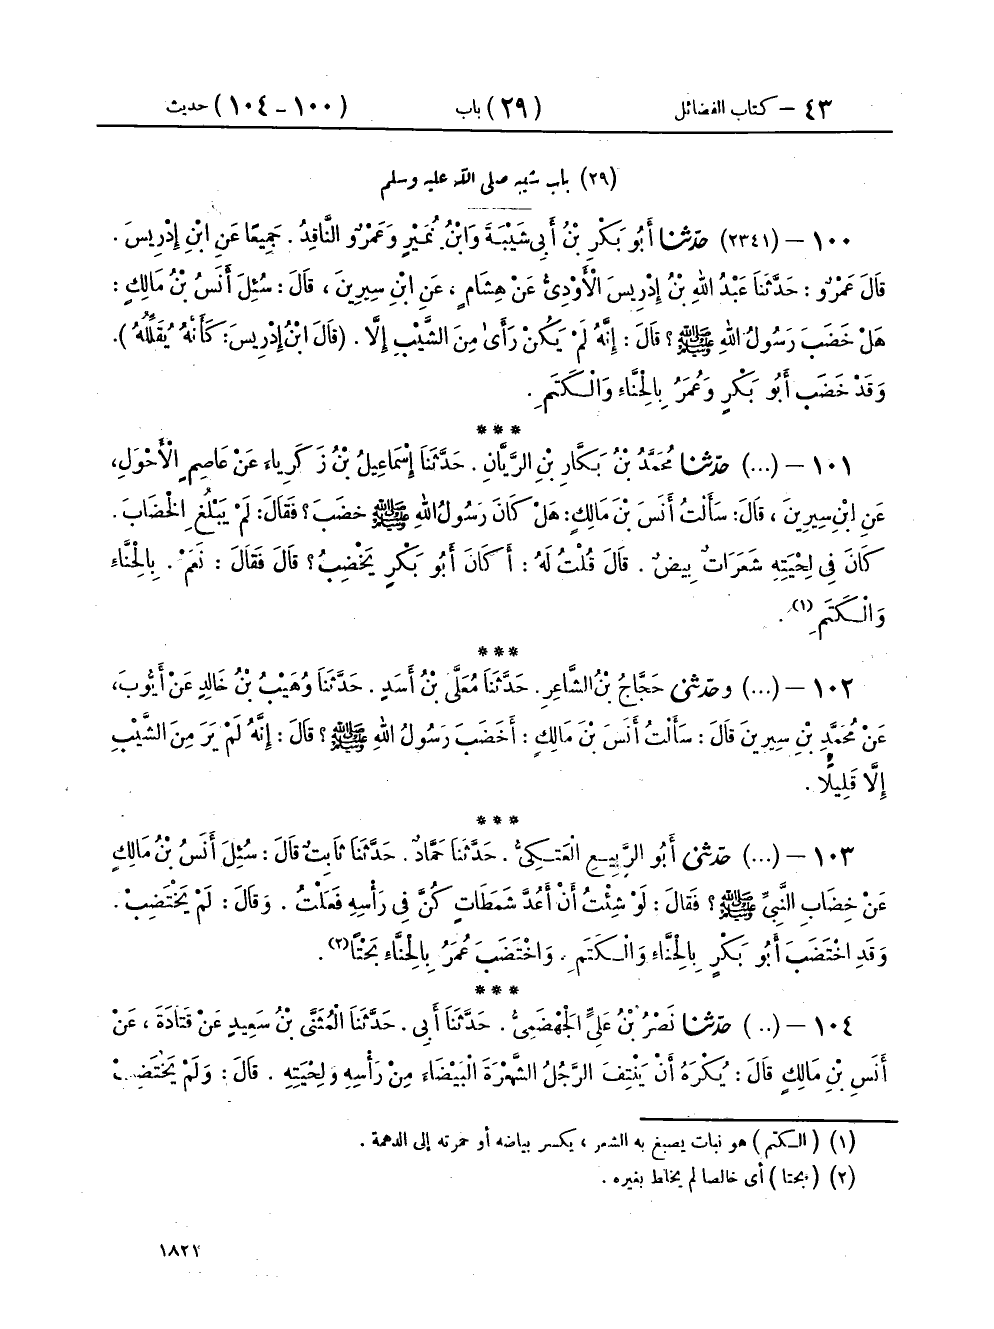 ٤٣ – كتاب الفضائل (٢٩) باب (١٠٠ – ١٠٤) حديث
(٢٩) باب شيبه صلى الله عليه وسلم
١٠٠ – (٢٣٤١) حَدَّثَنَا أَبُو بَكْرِ بْنُ أَبِى شَيْبَةَ وَابْنُ نُمَيْرٍ وَعَمْرٌو النَّاقِدُ . جَمِيعًا عَنِ ابْنِ إِدْرِيسَ .
قَالَ عَمْرٌو : حَدَّثَنَا عَبْدُ اللهِ بْنُ إِدْرِيسَ الْأَوْدِىُّ عَنْ هِشَامٍ ، عَنِ ابْنِ سِيرِينَ ، قَالَ : سُئِلَ أَنَسُ بْنُ مَالِكٍ :
هَلْ خَضَبَ رَسُولُ اللهِ ﷺ ؟ قَالَ : إِنَّهُ لَمْ يَكُنْ رَأَىٰ مِنَ الشَّيْبِ إِلَّا . (قَالَ ابْنُ إِدْرِيسَ : كَأَنَّهُ يُقَلِّلُهُ ) .
وَقَدْ خَضَبَ أَبُو بَكْرٍ وَعُمَرُ بِالْحِنَّاءِ وَالْكَتَمِ .
***
١٠١ – (...) حَدَّثَنَا مُحَمَّدُ بْنُ بَكَّارِ بْنِ الرَّيَّانِ . حَدَّثَنَا إِسْمَاعِيلُ بْنُ زَكَرِيَّاءَ عَنْ عَاصِمٍ الْأَحْوَلِ ،
عَنِ ابْنِ سِيرِينَ ، قَالَ : سَأَلْتُ أَنَسَ بْنَ مَالِكٍ : هَلْ كَانَ رَسُولُ اللهِ ﷺ خَضَبَ ؟ فَقَالَ : لَمْ يَبْلُغِ الْخِضَابَ .
كَانَ فِى لِحْيَتِهِ شَعَرَاتٌ بِيضٌ . قَالَ قُلْتُ لَهُ : أَكَانَ أَبُو بَكْرٍ يَخْضِبُ ؟ قَالَ فَقَالَ : نَعَمْ . بِالْحِنَّاءِ
وَالْكَتَمِ (١) .
***
١٠٢ – (...) وحَدَّثَنِى حَجَّاجُ بْنُ الشَّاعِرِ . حَدَّثَنَا مُعَلَّى بْنُ أَسَدٍ . حَدَّثَنَا وُهَيْبُ بْنُ خَالِدٍ عَنْ أَيُّوبَ ،
عَنْ مُحَمَّدِ بْنِ سِيرِينَ قَالَ : سَأَلْتُ أَنَسَ بْنَ مَالِكٍ : أَخَضَبَ رَسُولُ اللهِ ﷺ ؟ قَالَ : إِنَّهُ لَمْ يَرَ مِنَ الشَّيْبِ
إِلَّا قَلِيلًا .
***
١٠٣ – (...) حَدَّثَنِى أَبُو الرَّبِيعِ الْعَتَكِىُّ . حَدَّثَنَا حَمَّادٌ . حَدَّثَنَا ثَابِتٌ قَالَ : سُئِلَ أَنَسُ بْنُ مَالِكٍ
عَنْ خِضَابِ النَّبِيِّ ﷺ ؟ فَقَالَ : لَوْ شِئْتُ أَنْ أَعُدَّ شَمَطَاتٍ كُنَّ فِى رَأْسِهِ فَعَلْتُ . وَقَالَ : لَمْ يَخْتَضِبْ .
وَقَدِ اخْتَضَبَ أَبُو بَكْرٍ بِالْحِنَّاءِ وَالْكَتَمِ . وَاخْتَضَبَ عُمَرُ بِالْحِنَّاءِ بَحْتًا (٢) .
***
١٠٤ – (..) حَدَّثَنَا نَصْرُ بْنُ عَلِىٍّ الْجَهْضَمِىُّ . حَدَّثَنَا أَبِى . حَدَّثَنَا الْمُثَنَّى بْنُ سَعِيدٍ عَنْ قَتَادَةَ ، عَنْ
أَنَسِ بْنِ مَالِكٍ قَالَ : يُكْرَهُ أَنْ يَنْتِفَ الرَّجُلُ الشَّعْرَةَ الْبَيْضَاءَ مِنْ رَأْسِهِ وَلِحْيَتِهِ . قَالَ : وَلَمْ يَخْتَضِبْ
(١) (الكتم) هو نبات يصبغ به الشعر ، يكسر بياضه أو حمرته إلى الدهمة .
(٢) (بحتا) أى خالصا لم يخلط بغيره .
١٨٢١